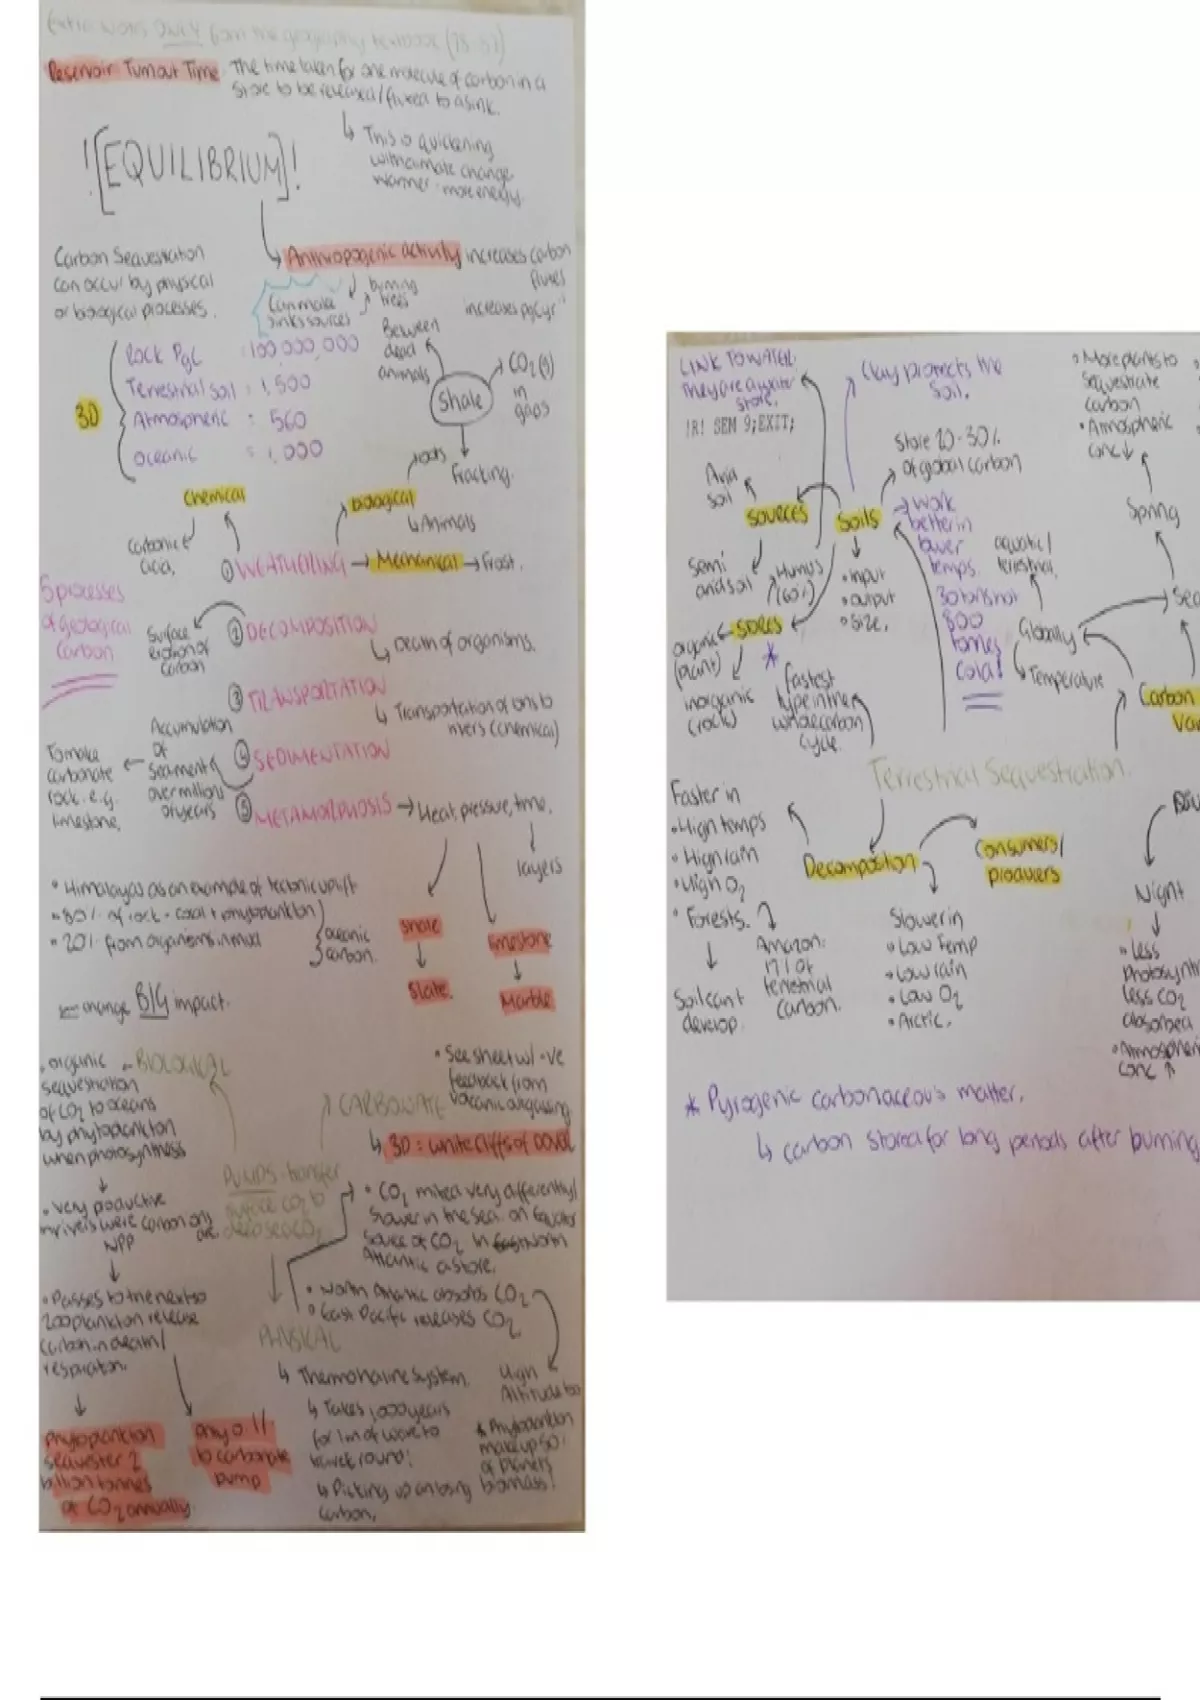 Extra notes ONLY from the geography textbook
Reservoir Turnout Time: The time taken for one molecule of carbon in a
store to be released/fluxed to a sink.
↳ This is quickening
with climate change
warmer: more energy.
![EQUILIBRIUM]!
Carbon Sequestration
can occur by physical
or biological processes.
Anthropogenic activity increases carbon
fluxes
increases PgCyr⁻¹
Can make
sinks sources
burning
trees
Between
dead
animals
CO2(g)
in
gaps
shale
Fracting.
3D
Rock PgC = 100,000,000
Terrestrial soil = 1,500
Atmospheric = 560
Oceanic = 1,000
chemical
Carbonic
acid.
biological
roots
↳ Animals
① WEATHERING → Mechanical → Frost.
5 processes
of geological
carbon
② DECOMPOSITION
Surface
erosion of
carbon
↳ Death of organisms.
③ TRANSPORTATION
↳ Transportation of ions to
rivers (chemical)
④ SEDIMENTATION
Accumulation
of
sediments
over millions
of years
To make
carbonate
rock. e.g.
limestone.
⑤ METAMORPHOSIS → Heat, pressure, time.
layers
• Himalayas as an example of tectonic uplift
• 80% of rock = coral + phytoplankton
• 20% from organisms in mud
oceanic
carbon.
shale
slate.
limestone
Marble
change BIG impact.
BIOLOGICAL
• organic
sequestration
of CO2 to oceans
by phytoplankton
when photosynthesis
• very productive
NPP
• Passes to the next so
zooplankton release
carbon in death/
respiration.
Phytoplankton
sequester 2
billion tonnes
of CO2 annually.
only 0.1%
to carbonate
pump
PUMPS - transfer
surface CO2 to
deep sea CO2
CARBONATE
• See sheet w/ -ve
feedback from
volcanic outgassing
↳ 3D = white cliffs of Dover
• CO2 mixed very differently/
slower in the sea. on Equator
source of CO2 in North
Atlantic a store.
• North Atlantic absorbs CO2
• East Pacific releases CO2
High
Altitude too
PHYSICAL
↳ Thermohaline system.
↳ Takes 1,000 years
for 1m of wave to
travel round!
↳ Picking up
carbon.
* Phytoplankton
make up 50%
of planets
biomass!
LINK TO WATER:
they are a water
store.
!R! SEM 9;EXIT;
Clay protects the
soil.
Store 20-30%
of global carbon
sources
Arid
soil
semi
arid soil
soils
→ work
better in
lower
temps.
30 tonnes hot
800
tonnes
cold!
• input
• output
• size.
Humus
(60%)
stores
*
organic
(plant)
inorganic
(rock)
fastest
type in the
whole carbon
cycle.
• More plants to
sequestrate
carbon
• Atmospheric
conc ↓
Spring
aquatic/
terrestrial.
Globally
Temperature
Carbon
Terrestrial Sequestration.
Decomposition
Consumers/
producers
Faster in
• High temps
• High rain
• High O2
• Forests.
Soil can't
develop.
Amazon:
17% of
terrestrial
carbon.
Slower in
• Low Temp
• Low rain
• Low O2
• Arctic.
Night
• less
less CO2
absorbed
conc ↑
* Pyrogenic carbonaceous matter.
↳ carbon stored for long periods after burning